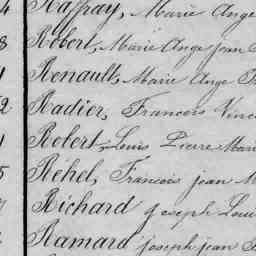 4 Raffray, Marie Ange
8 Robert, Marie Ange Jean
Renault, Marie Ange
2 Radier, Francois Vinc
1 Robert, Louis Pierre Marie
5 Réhel, Francois jean M
Richard joseph Loui
Ramard joseph jean